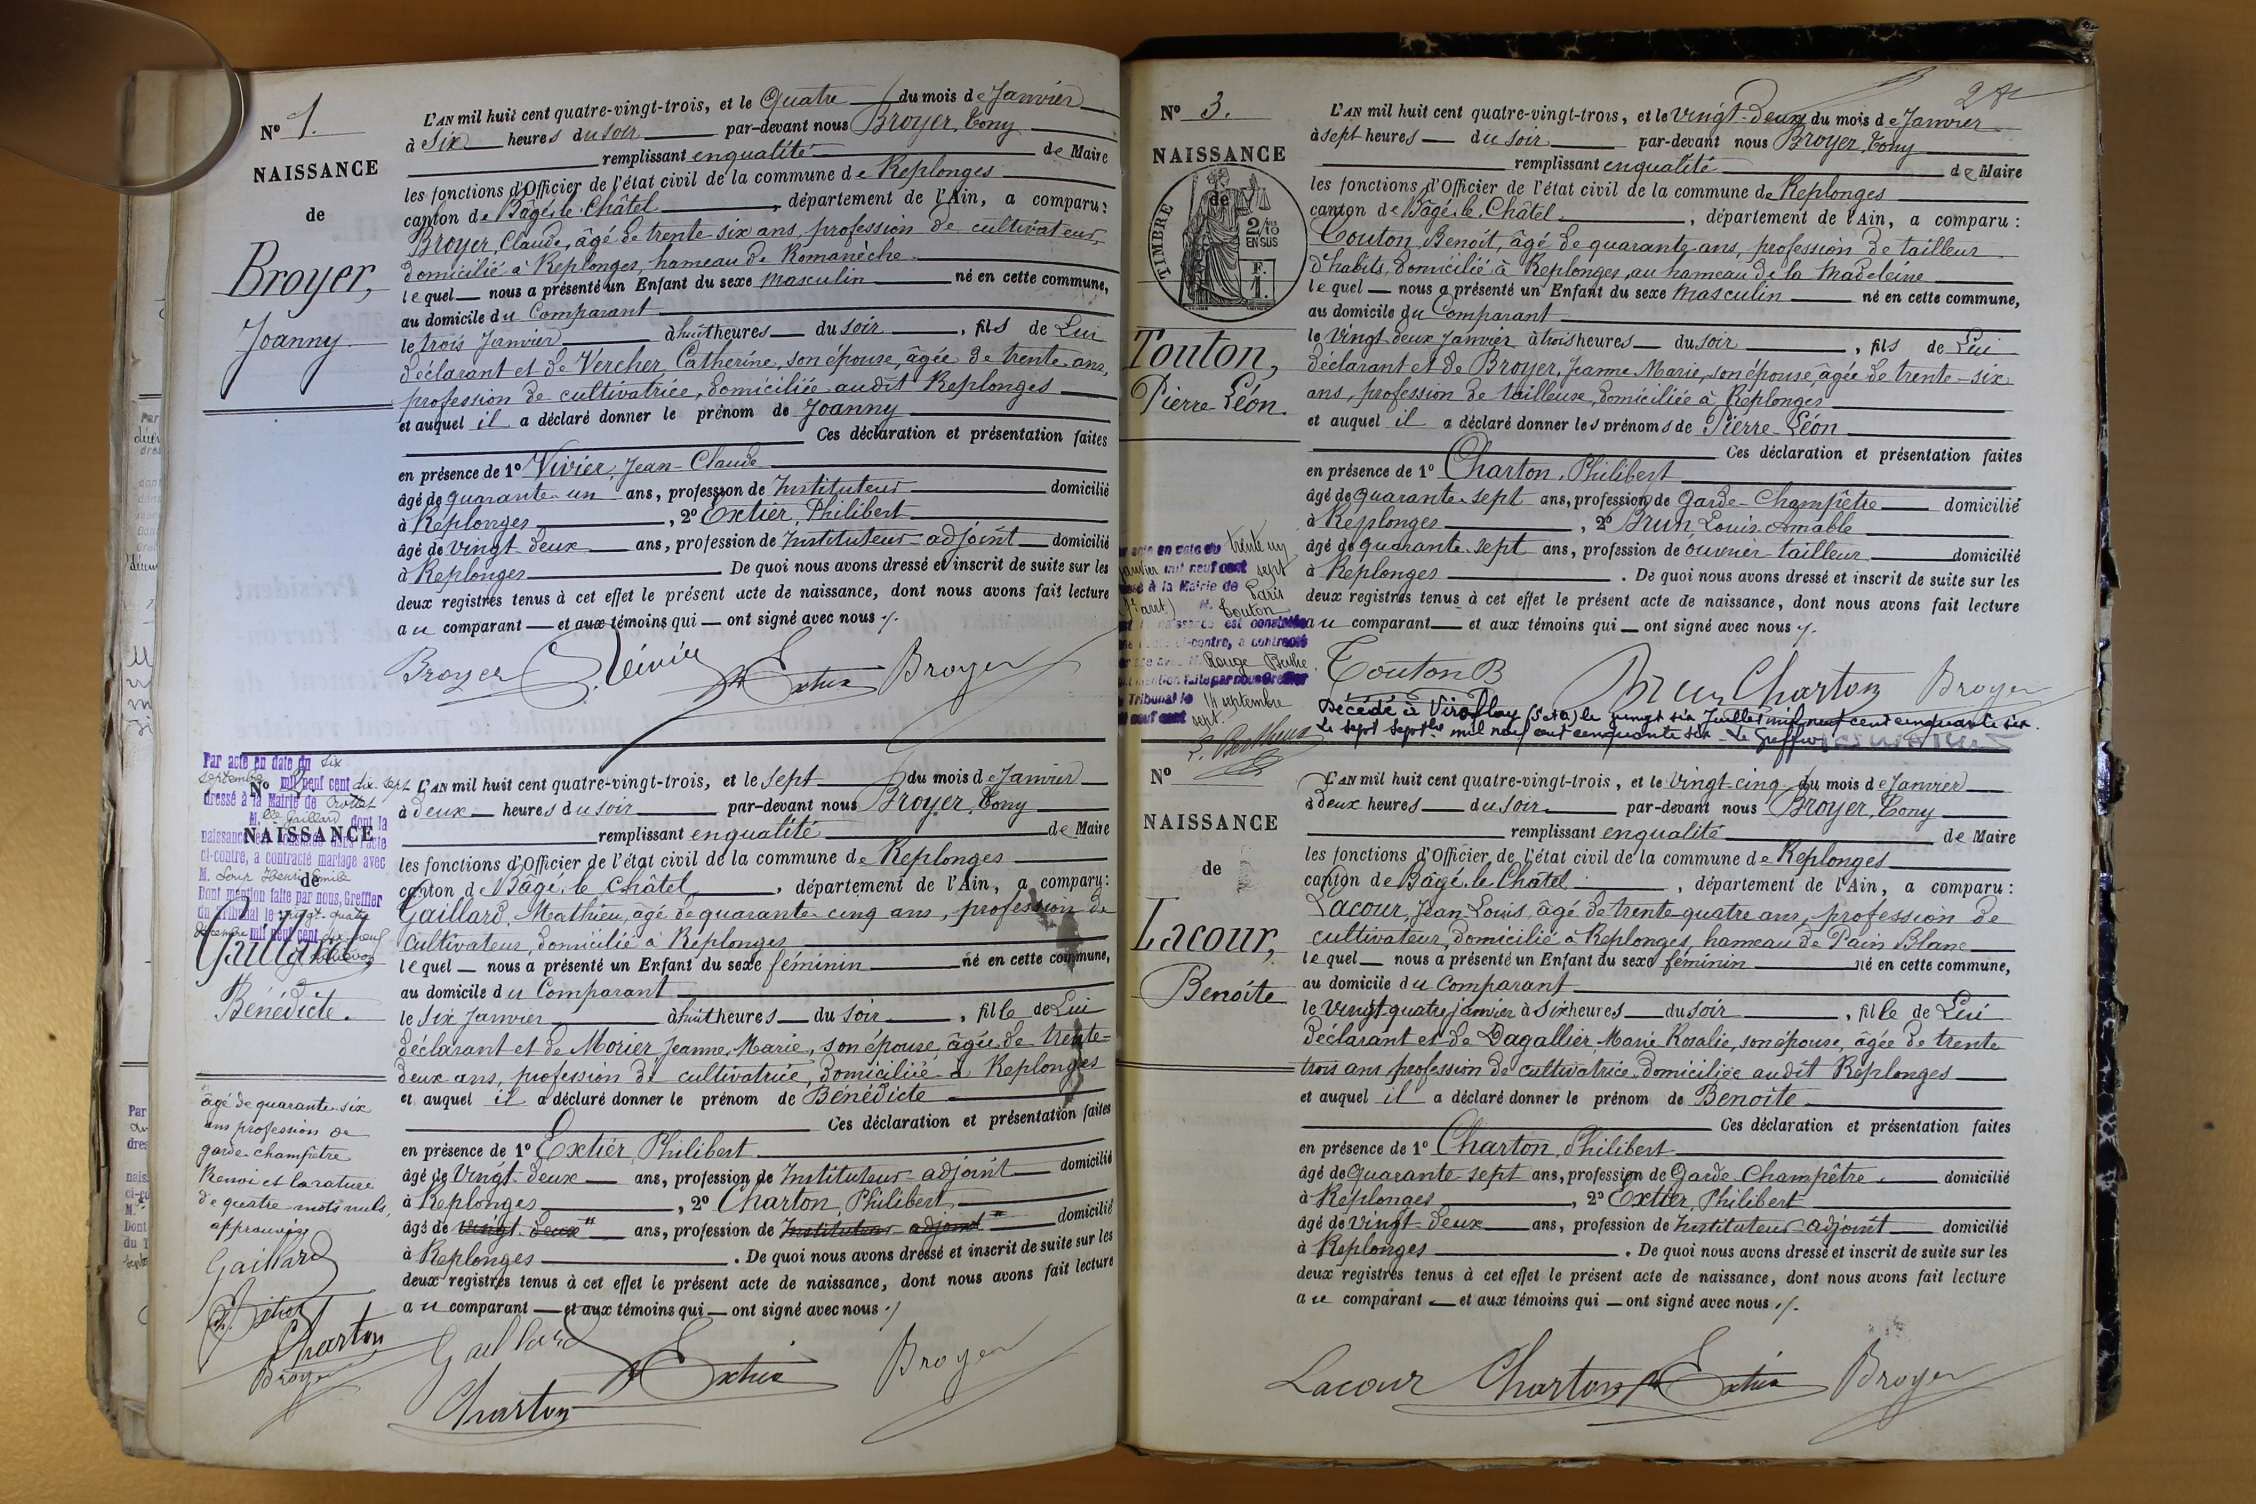 N° 1.
NAISSANCE
de
Broyer,
Joanny
L'AN mil huit cent quatre-vingt-trois, et le Quatre du mois de Janvier
à Six heures du soir par-devant nous Broyer, Tony
remplissant en qualité de Maire
les fonctions d'Officier de l'état civil de la commune de Replonges
canton de Bâgé-le-Châtel, département de l'Ain, a comparu:
Broyer, Claude, âgé de trente six ans, profession de cultivateur,
domicilié à Replonges, hameau de Romanèche
lequel nous a présenté un Enfant du sexe masculin né en cette commune,
au domicile du Comparant
le trois Janvier à huit heures du soir, fils de Lui
déclarant et de Vercher, Catherine, son épouse, âgée de trente ans,
profession de cultivatrice, domiciliée audit Replonges
et auquel il a déclaré donner le prénom de Joanny
Ces déclaration et présentation faites
en présence de 1° Vivier, Jean-Claude
âgé de quarante-un ans, profession de Instituteur domicilié
à Replonges, 2° Extier, Philibert
âgé de vingt deux ans, profession de Instituteur-adjoint domicilié
à Replonges De quoi nous avons dressé et inscrit de suite sur les
deux registres tenus à cet effet le présent acte de naissance, dont nous avons fait lecture
au comparant et aux témoins qui ont signé avec nous ./.
Broyer Vivier Ph Extier Broyer
Par acte en date du six
septembre mil neuf cent dix-sept
dressé à la Mairie de Crottet
M. lle Gaillard dont la
naissance est constatée dans l'acte
ci-contre, a contracté mariage avec
M. Henri Emile
Dont mention faite par nous, Greffier
du Tribunal le vingt-quatre
décembre mil neuf cent dix-neuf
N°
NAISSANCE
de
Gaillard,
Bénédicte.
L'AN mil huit cent quatre-vingt-trois, et le sept du mois de Janvier
à deux heures du soir par-devant nous Broyer, Tony
remplissant en qualité de Maire
les fonctions d'Officier de l'état civil de la commune de Replonges
canton de Bâgé-le-Châtel, département de l'Ain, a comparu:
Gaillard, Mathieu, âgé de quarante-cinq ans, profession de
Cultivateur, domicilié à Replonges
lequel nous a présenté un Enfant du sexe féminin né en cette commune,
au domicile du Comparant
le Six Janvier à huit heures du soir, fille de Lui
déclarant et de Morier, Jeanne Marie, son épouse, âgée de trente-
deux ans, profession de cultivatrice, domiciliée à Replonges
et auquel il a déclaré donner le prénom de Bénédicte
Ces déclaration et présentation faites
en présence de 1° Extier, Philibert
âgé de Vingt-deux ans, profession de Instituteur-adjoint domicilié
à Replonges, 2° Charton, Philibert
âgé de vingt-deux " ans, profession de Instituteur-adjoint " domicilié
à Replonges. De quoi nous avons dressé et inscrit de suite sur les
deux registres tenus à cet effet le présent acte de naissance, dont nous avons fait lecture
au comparant et aux témoins qui ont signé avec nous ./.
âgé de quarante-six
ans profession de
garde-champêtre
Renvoi et la rature
de quatre mots nuls,
approuvés
Gaillard
Ph. Extier
Charton
Broyer
Gaillard Ph Extier Broyer
Charton
2
N° 3.
NAISSANCE
de
TIMBRE
2/10
EN SUS
F.
1.
Touton,
Pierre-Léon.
L'AN mil huit cent quatre-vingt-trois, et le Vingt-Deux du mois de Janvier
à sept heures du soir par-devant nous Broyer, Tony
remplissant en qualité de Maire
les fonctions d'Officier de l'état civil de la commune de Replonges
canton de Bâgé-le-Châtel, département de l'Ain, a comparu:
Touton, Benoît, âgé de quarante ans, profession de tailleur
d'habits, domicilié à Replonges, au hameau de la Madeleine
lequel nous a présenté un Enfant du sexe masculin né en cette commune,
au domicile du Comparant
le Vingt deux Janvier à trois heures du soir, fils de Lui
déclarant et de Broyer, Jeanne Marie, son épouse, âgée de trente-six
ans, profession de tailleuse, domiciliée à Replonges
et auquel il a déclaré donner les prénoms de Pierre-Léon
Ces déclaration et présentation faites
en présence de 1° Charton, Philibert
âgé de quarante-sept ans, profession de Garde-Champêtre domicilié
à Replonges, 2° Brun, Louis-Amable
âgé de quarante-sept ans, profession de ouvrier tailleur domicilié
à Replonges. De quoi nous avons dressé et inscrit de suite sur les
deux registres tenus à cet effet le présent acte de naissance, dont nous avons fait lecture
au comparant et aux témoins qui ont signé avec nous ./.
acte en date du trente un
janvier mil neuf cent sept
à la Mairie de Paris
M. Touton
naissance est constatée
ci-contre, a contracté
avec M. Rouge Berthe
mention faite par nous Greffier
Tribunal le 14 septembre
neuf cent sept.
Touton B Brun Charton Broyer
Décédé à Viroflay (S et O) le vingt six Juillet mil neuf cent cinquante six.
Le sept Septbre mil neuf cent cinquante six. Le Greffier
N°
NAISSANCE
de
Lacour,
Benoîte
L'AN mil huit cent quatre-vingt-trois, et le Vingt-cinq du mois de Janvier
à deux heures du soir par-devant nous Broyer, Tony
remplissant en qualité de Maire
les fonctions d'Officier de l'état civil de la commune de Replonges
canton de Bâgé-le-Châtel, département de l'Ain, a comparu:
Lacour, Jean-Louis, âgé de trente-quatre ans, profession de
cultivateur, domicilié à Replonges, hameau de Pain Blanc
lequel nous a présenté un Enfant du sexe féminin né en cette commune,
au domicile du Comparant
le Vingt quatre janvier à six heures du soir, fille de Lui
déclarant et de Dagallier, Marie Rosalie, son épouse, âgée de trente
trois ans profession de cultivatrice domiciliée audit Replonges
et auquel il a déclaré donner le prénom de Benoîte
Ces déclaration et présentation faites
en présence de 1° Charton, Philibert
âgé de Quarante-sept ans, profession de Garde Champêtre domicilié
à Replonges, 2° Extier, Philibert
âgé de vingt-deux ans, profession de Instituteur adjoint domicilié
à Replonges. De quoi nous avons dressé et inscrit de suite sur les
deux registres tenus à cet effet le présent acte de naissance, dont nous avons fait lecture
au comparant et aux témoins qui ont signé avec nous ./.
Lacour Charton Ph Extier Broyer